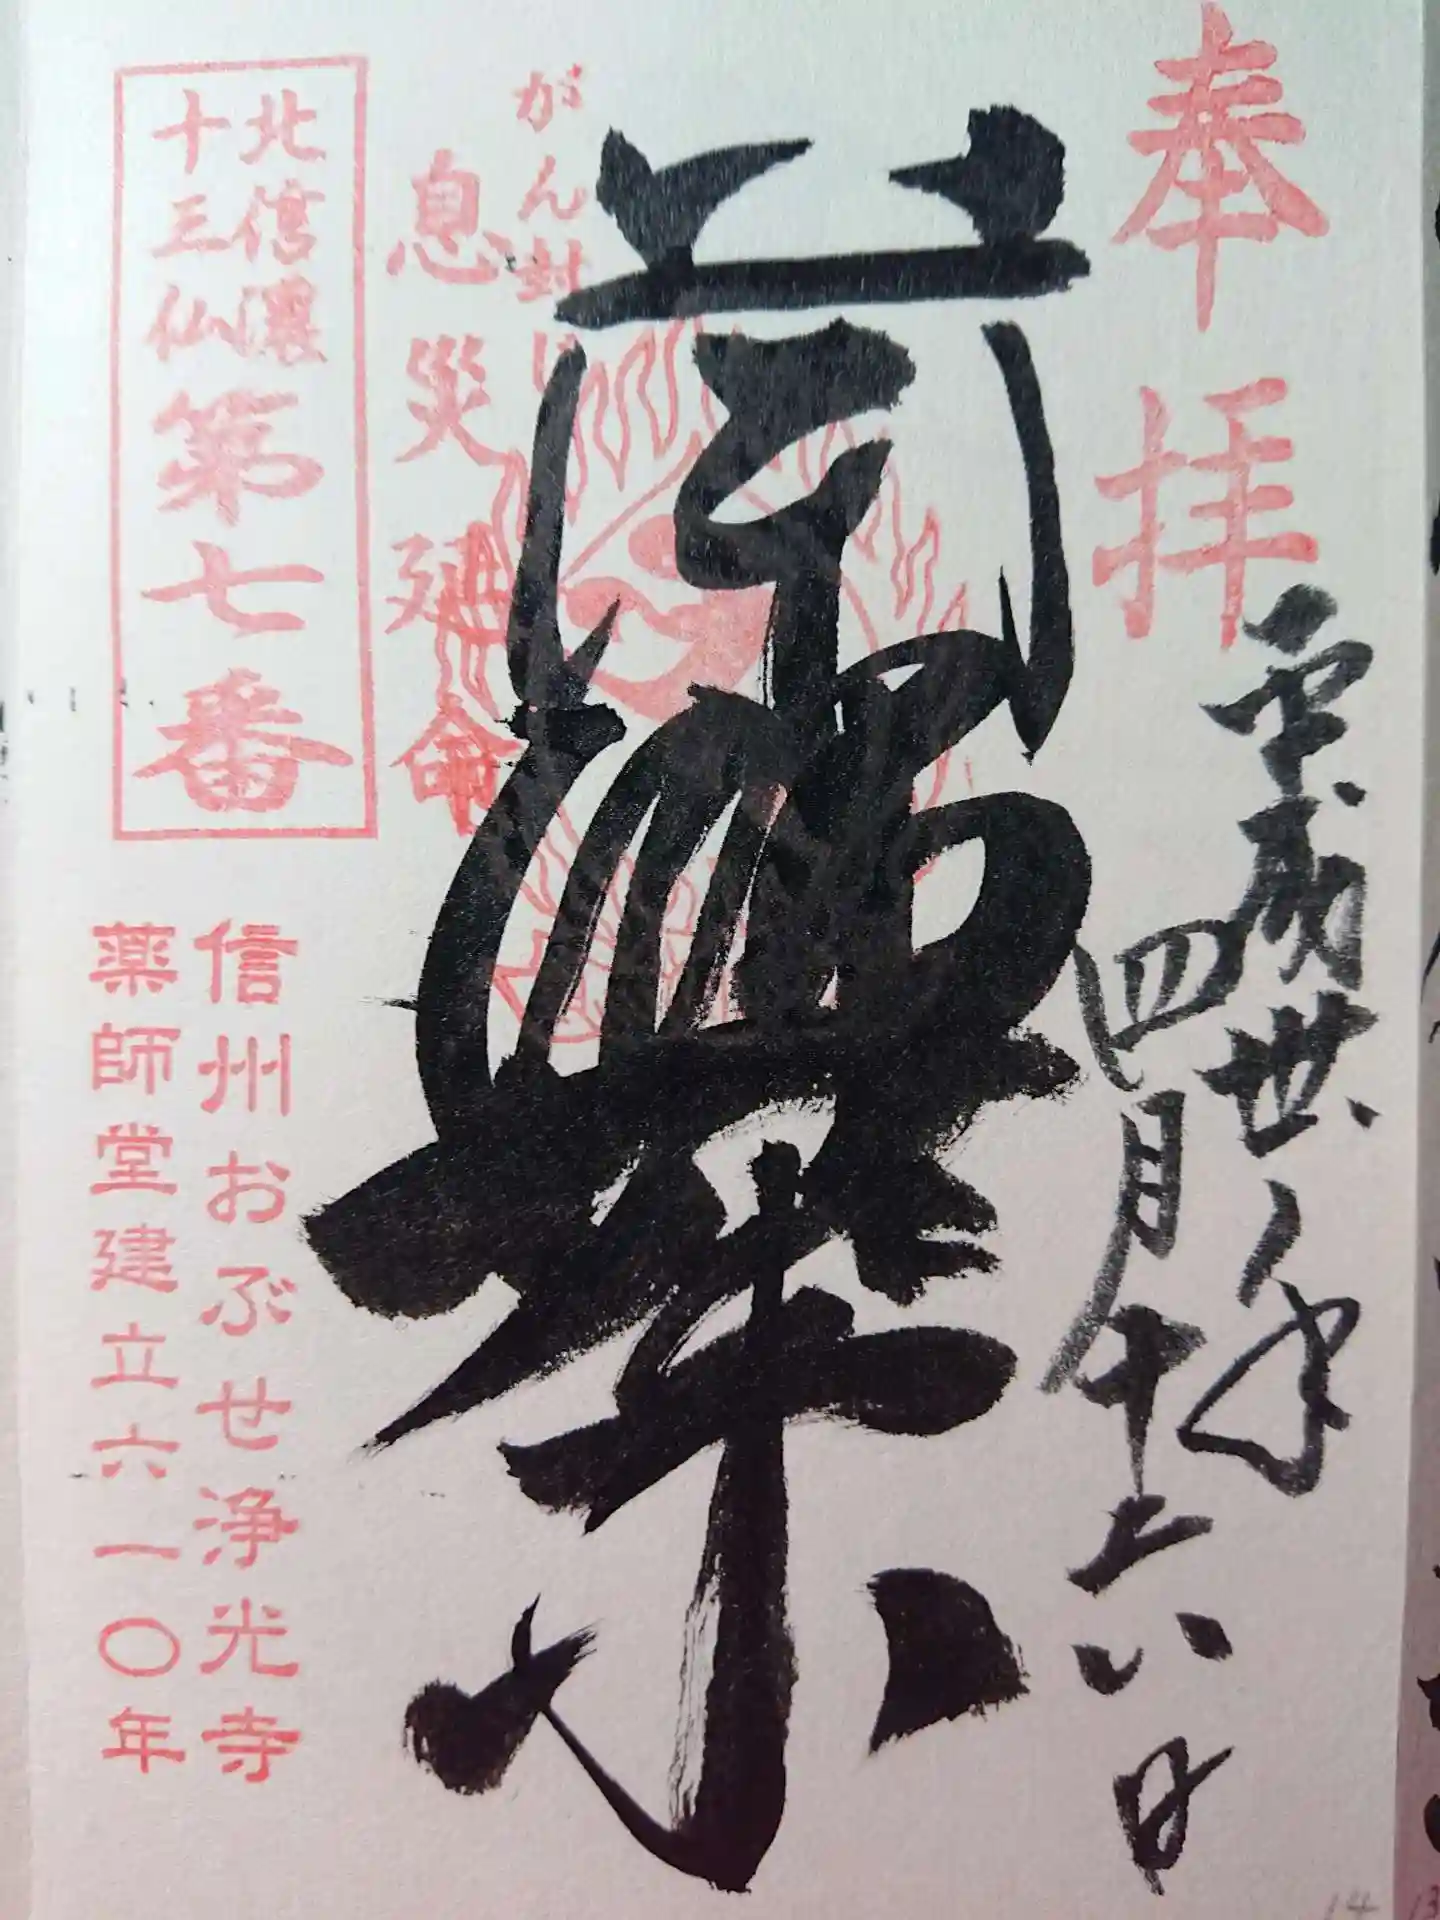 奉拝
平成廿八年
四月十六日
薬
がん封じ
息災延命
北信濃
十三仏
第七番
信州おぶせ浄光寺
薬師堂建立六一〇年
14
13